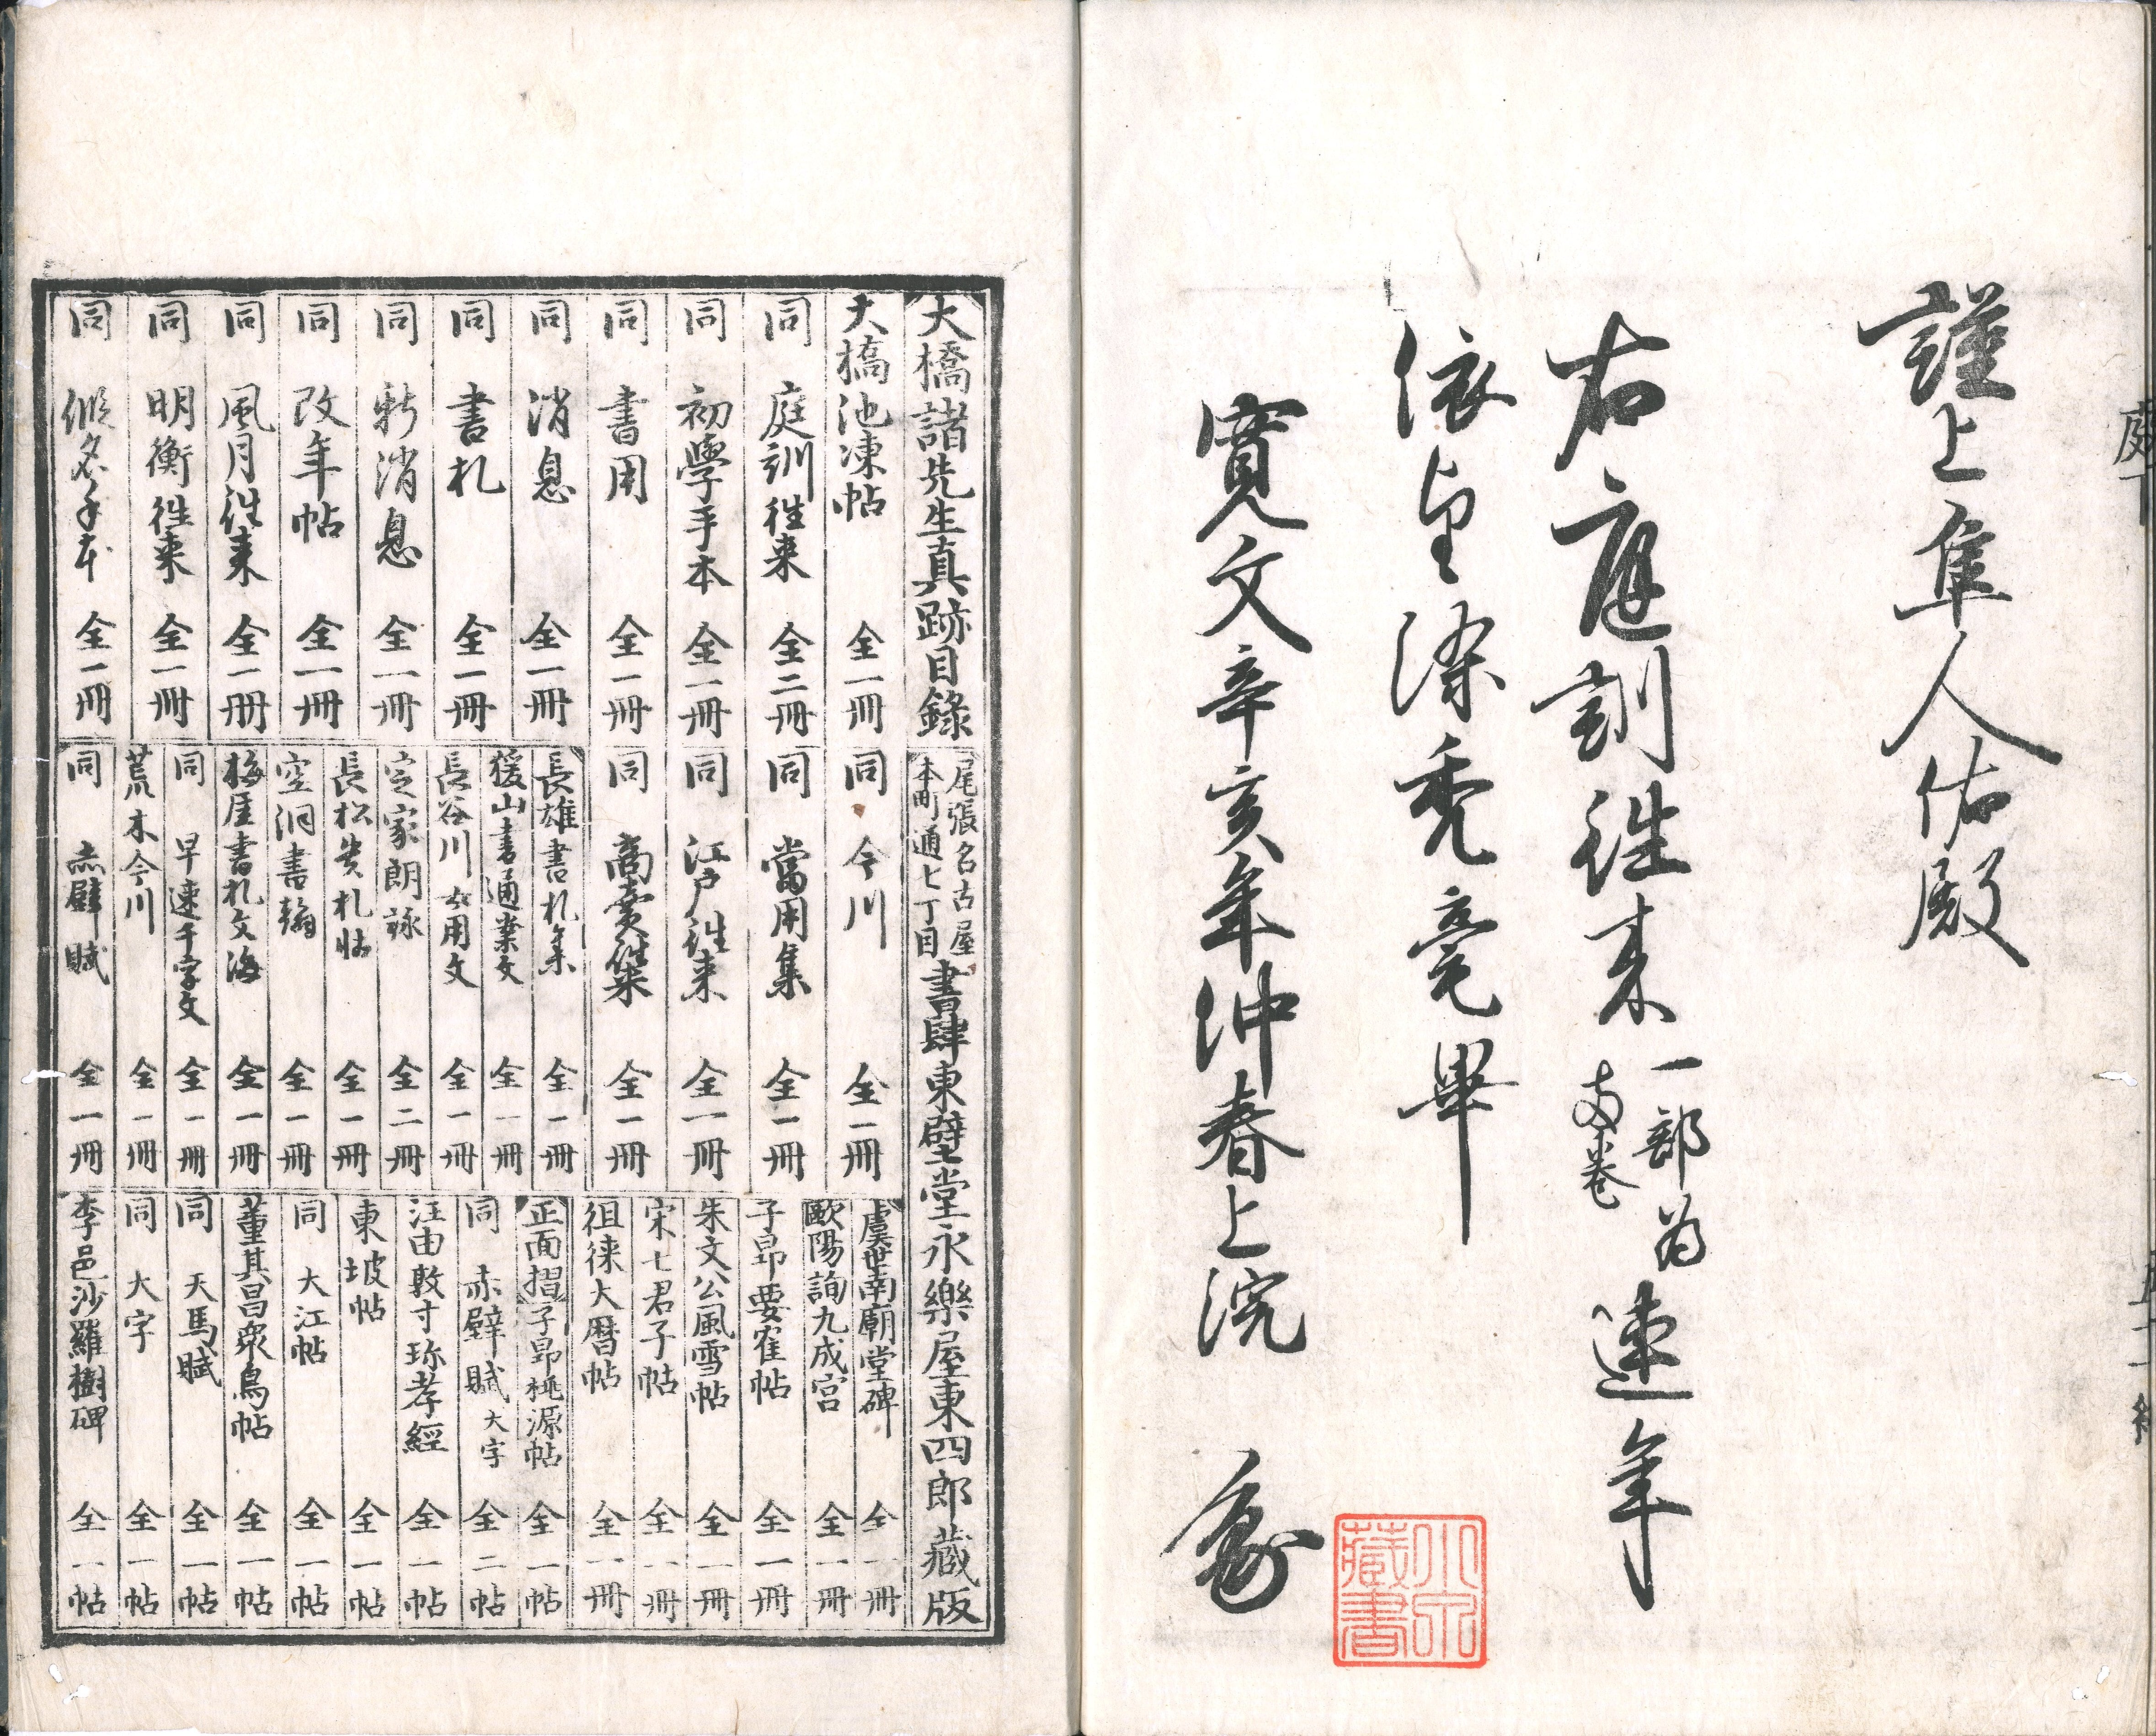 謹上隼人佑殿
右庭訓往来一部為両巻連年
依望染禿毫畢
寛文辛亥年仲春上浣
小宗蔵書
大橋諸先生真跡目録
尾張名古屋
本町通七丁目
書肆東壁堂永樂屋東四郎藏版
大橋池凍帖 全一冊
同 庭訓往来 全二冊
同 初學手本 全一冊
同 書用 全一冊
同 消息 全一冊
同 書札 全一冊
同 新消息 全一冊
同 改年帖 全一冊
同 風月往来 全一冊
同 明衡往来 全一冊
同 假名手本 全一冊
同 今川 全一冊
同 當用集 全一冊
同 江戸往来 全一冊
同 商賣往来 全一冊
長雄書札集 全一冊
猨山書通案文 全一冊
長谷川女用文 全一冊
定家朗詠 全二冊
長松貴札帖 全一冊
空洞書翰 全一冊
梅厓書札文海 全一冊
同 早速千字文 全一冊
荒木今川 全一冊
同 赤壁賦 全一冊
虞世南廟堂碑 全一冊
歐陽詢九成宮 全一冊
子昂要窂帖 全一冊
朱文公風雪帖 全一冊
宋七君子帖 全一冊
徂徠大暦帖 全一冊
正面摺子昂桃源帖 全一帖
同 赤壁賦大字 全二帖
汪由敦寸珎孝經 全一帖
東坡帖 全一帖
同 大江帖 全一帖
董其昌衆鳥帖 全一帖
同 天馬賦 全一帖
同 大字 全一帖
李邕沙羅樹碑 全一帖